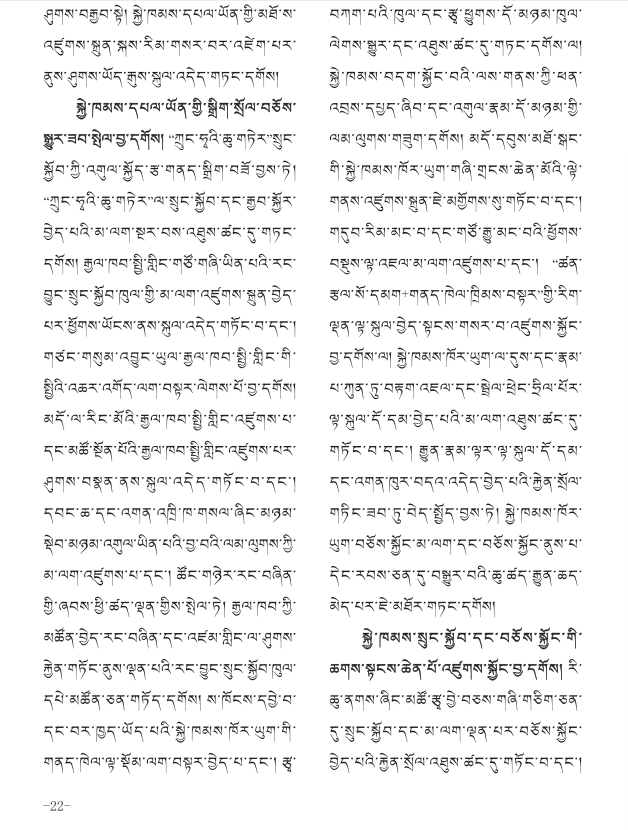 ཤུགས་བརྒྱབ་སྟེ། སྐྱེ་ཁམས་དཔལ་ཡོན་གྱི་མཐོ་ས་
འཛུགས་སྐྲུན་སྐས་རིམ་གསར་བར་འཛེག་པར་
ནུས་ཤུགས་ཡོད་རྒུས་སྐུལ་འདེད་གཏང་དགོས།
སྐྱེ་ཁམས་དཔལ་ཡོན་གྱི་སྒྲིག་སྲོལ་བཅོས་
སྒྱུར་ཟབ་སྤེལ་བྱ་དགོས། “ཀྲུང་ཧྭའི་ཆུ་གཏེར”སྲུང་
སྐྱོབ་ཀྱི་འགུལ་སྐྱོད་རྩ་གནད་སྒྲིག་བཟོ་བྱས་ཏེ།
“ཀྲུང་ཧྭའི་ཆུ་གཏེར”ལ་སྲུང་སྐྱོབ་དང་རྒྱབ་སྐྱོར་
བྱེད་པའི་མ་ལག་སྔར་བས་འཐུས་ཚང་དུ་གཏང་
དགོས། རྒྱལ་ཁབ་སྤྱི་གླིང་གཙོ་གཞི་ཡིན་པའི་རང་
བྱུང་སྲུང་སྐྱོབ་ཁུལ་གྱི་མ་ལག་འཛུགས་སྐྲུན་བྱེད་
པར་ཕྱོགས་ཡོངས་ནས་སྐུལ་འདེད་གཏོང་བ་དང་།
གཙང་གསུམ་འབྱུང་ཡུལ་རྒྱལ་ཁབ་སྤྱི་གླིང་གི་
སྤྱིའི་འཆར་འགོད་ལག་བསྟར་ལེགས་པོ་བྱ་དགོས།
མདོ་ལ་རིང་མོའི་རྒྱལ་ཁབ་སྤྱི་གླིང་འཛུགས་པ་
དང་མཚོ་སྔོན་པོའི་རྒྱལ་ཁབ་སྤྱི་གླིང་འཛུགས་པར་
ཤུགས་བསྣན་ནས་སྐུལ་འདེད་གཏོང་བ་དང་།
དབང་ཆ་དང་འགན་འཁྲི་ཁ་གསལ་ཞིང་མཉམ་
སྡེབ་མཉམ་འགུལ་ཡིན་པའི་བྱ་བའི་ལམ་ལུགས་ཀྱི་
མ་ལག་འཛུགས་པ་དང་། ཚོང་གཉེར་རང་བཞིན་
གྱི་ཞབས་ཕྱི་ཚད་ལྡན་གྱིས་སྤེལ་ཏེ། རྒྱལ་ཁབ་ཀྱི་
མཚོན་བྱེད་རང་བཞིན་དང་འཛམ་གླིང་ལ་ཤུགས་
རྐྱེན་གཏོང་ནུས་ལྡན་པའི་རང་བྱུང་སྲུང་སྐྱོབ་ཁུལ་
དཔེ་མཚོན་ཅན་གཏོད་དགོས། ས་ཁོངས་དབྱེ་བ་
དང་བར་ཁྱད་ཡོད་པའི་སྐྱེ་ཁམས་ཁོར་ཡུག་གི་
གནད་ཁེལ་ལྟ་སྡོམ་ལག་བསྟར་བྱེད་པ་དང་། རྩྭ་
བཀག་པའི་ཁུལ་དང་རྩྭ་ཕྱུགས་དོ་མཉམ་ཁུལ་
ལེགས་སྒྱུར་དང་འཐུས་ཚང་དུ་གཏང་དགོས་ལ།
སྐྱེ་ཁམས་བདག་སྐྱོང་བའི་ལས་གནས་ཀྱི་ཕན་
འབྲས་དཔྱད་ཞིབ་དང་འགུལ་རྣམ་དོ་མཉམ་གྱི་
ལམ་ལུགས་གཟུག་དགོས། མདོ་དབུས་མཐོ་སྒང་
གི་སྐྱེ་ཁམས་ཁོར་ཡུག་གཞི་གྲངས་ཆེན་མོའི་ལྟེ་
གནས་འཛུགས་སྐྲུན་ཇེ་མགྱོགས་སུ་གཏོང་བ་དང་།
གདུབ་རིམ་མང་བ་དང་གཙོ་རྒྱུ་མང་བའི་ཕྱོགས་
བསྡུས་ལྟ་འཇལ་མ་ལག་འཛུགས་པ་དང་། “ཚན་
རྩལ་སོ་དམག+གནད་ཁེལ་ཁྲིམས་བསྟར”གྱི་རིག་
ལྡན་ལྟ་སྐུལ་བྱེད་སྟངས་གསར་བ་འཛུགས་སྐྱོང་
བྱ་དགོས་ལ། སྐྱེ་ཁམས་ཁོར་ཡུག་ལ་དུས་དང་རྣམ་
པ་ཀུན་ཏུ་བརྟག་འཇལ་དང་སྦྲེལ་ཕྲེང་ཧྲིལ་པོར་
ལྟ་སྐུལ་དོ་དམ་བྱེད་པའི་མ་ལག་འཐུས་ཚང་དུ་
གཏོང་བ་དང་། རྒྱུན་རྣམ་ལྟར་ལྟ་སྐུལ་དོ་དམ་
དང་འགན་ཁུར་བདའ་འདེད་བྱེད་པའི་རྐྱེན་སྲོལ་
གཏིང་ཟབ་ཏུ་བེད་སྤྱོད་བྱས་ཏེ། སྐྱེ་ཁམས་ཁོར་
ཡུག་བཅོས་སྐྱོང་མ་ལག་དང་བཅོས་སྐྱོང་ནུས་པ་
དེང་རབས་ཅན་དུ་བསྒྱུར་བའི་ཆུ་ཚད་རྒྱུན་ཆད་
མེད་པར་ཇེ་མཐོར་གཏང་དགོས།
སྐྱེ་ཁམས་སྲུང་སྐྱོབ་དང་བཅོས་སྐྱོང་གི་
ཆགས་སྟངས་ཆེན་པོ་འཛུགས་སྐྱོང་བྱ་དགོས། རི་
ཆུ་ནགས་ཞིང་མཚོ་རྩྭ་བྱེ་བཅས་གཞི་གཅིག་ཅན་
དུ་སྲུང་སྐྱོབ་དང་མ་ལག་ལྡན་པར་བཅོས་སྐྱོང་
བྱེད་པའི་རྐྱེན་སྲོལ་འཐུས་ཚང་དུ་གཏོང་བ་དང་།
-22-